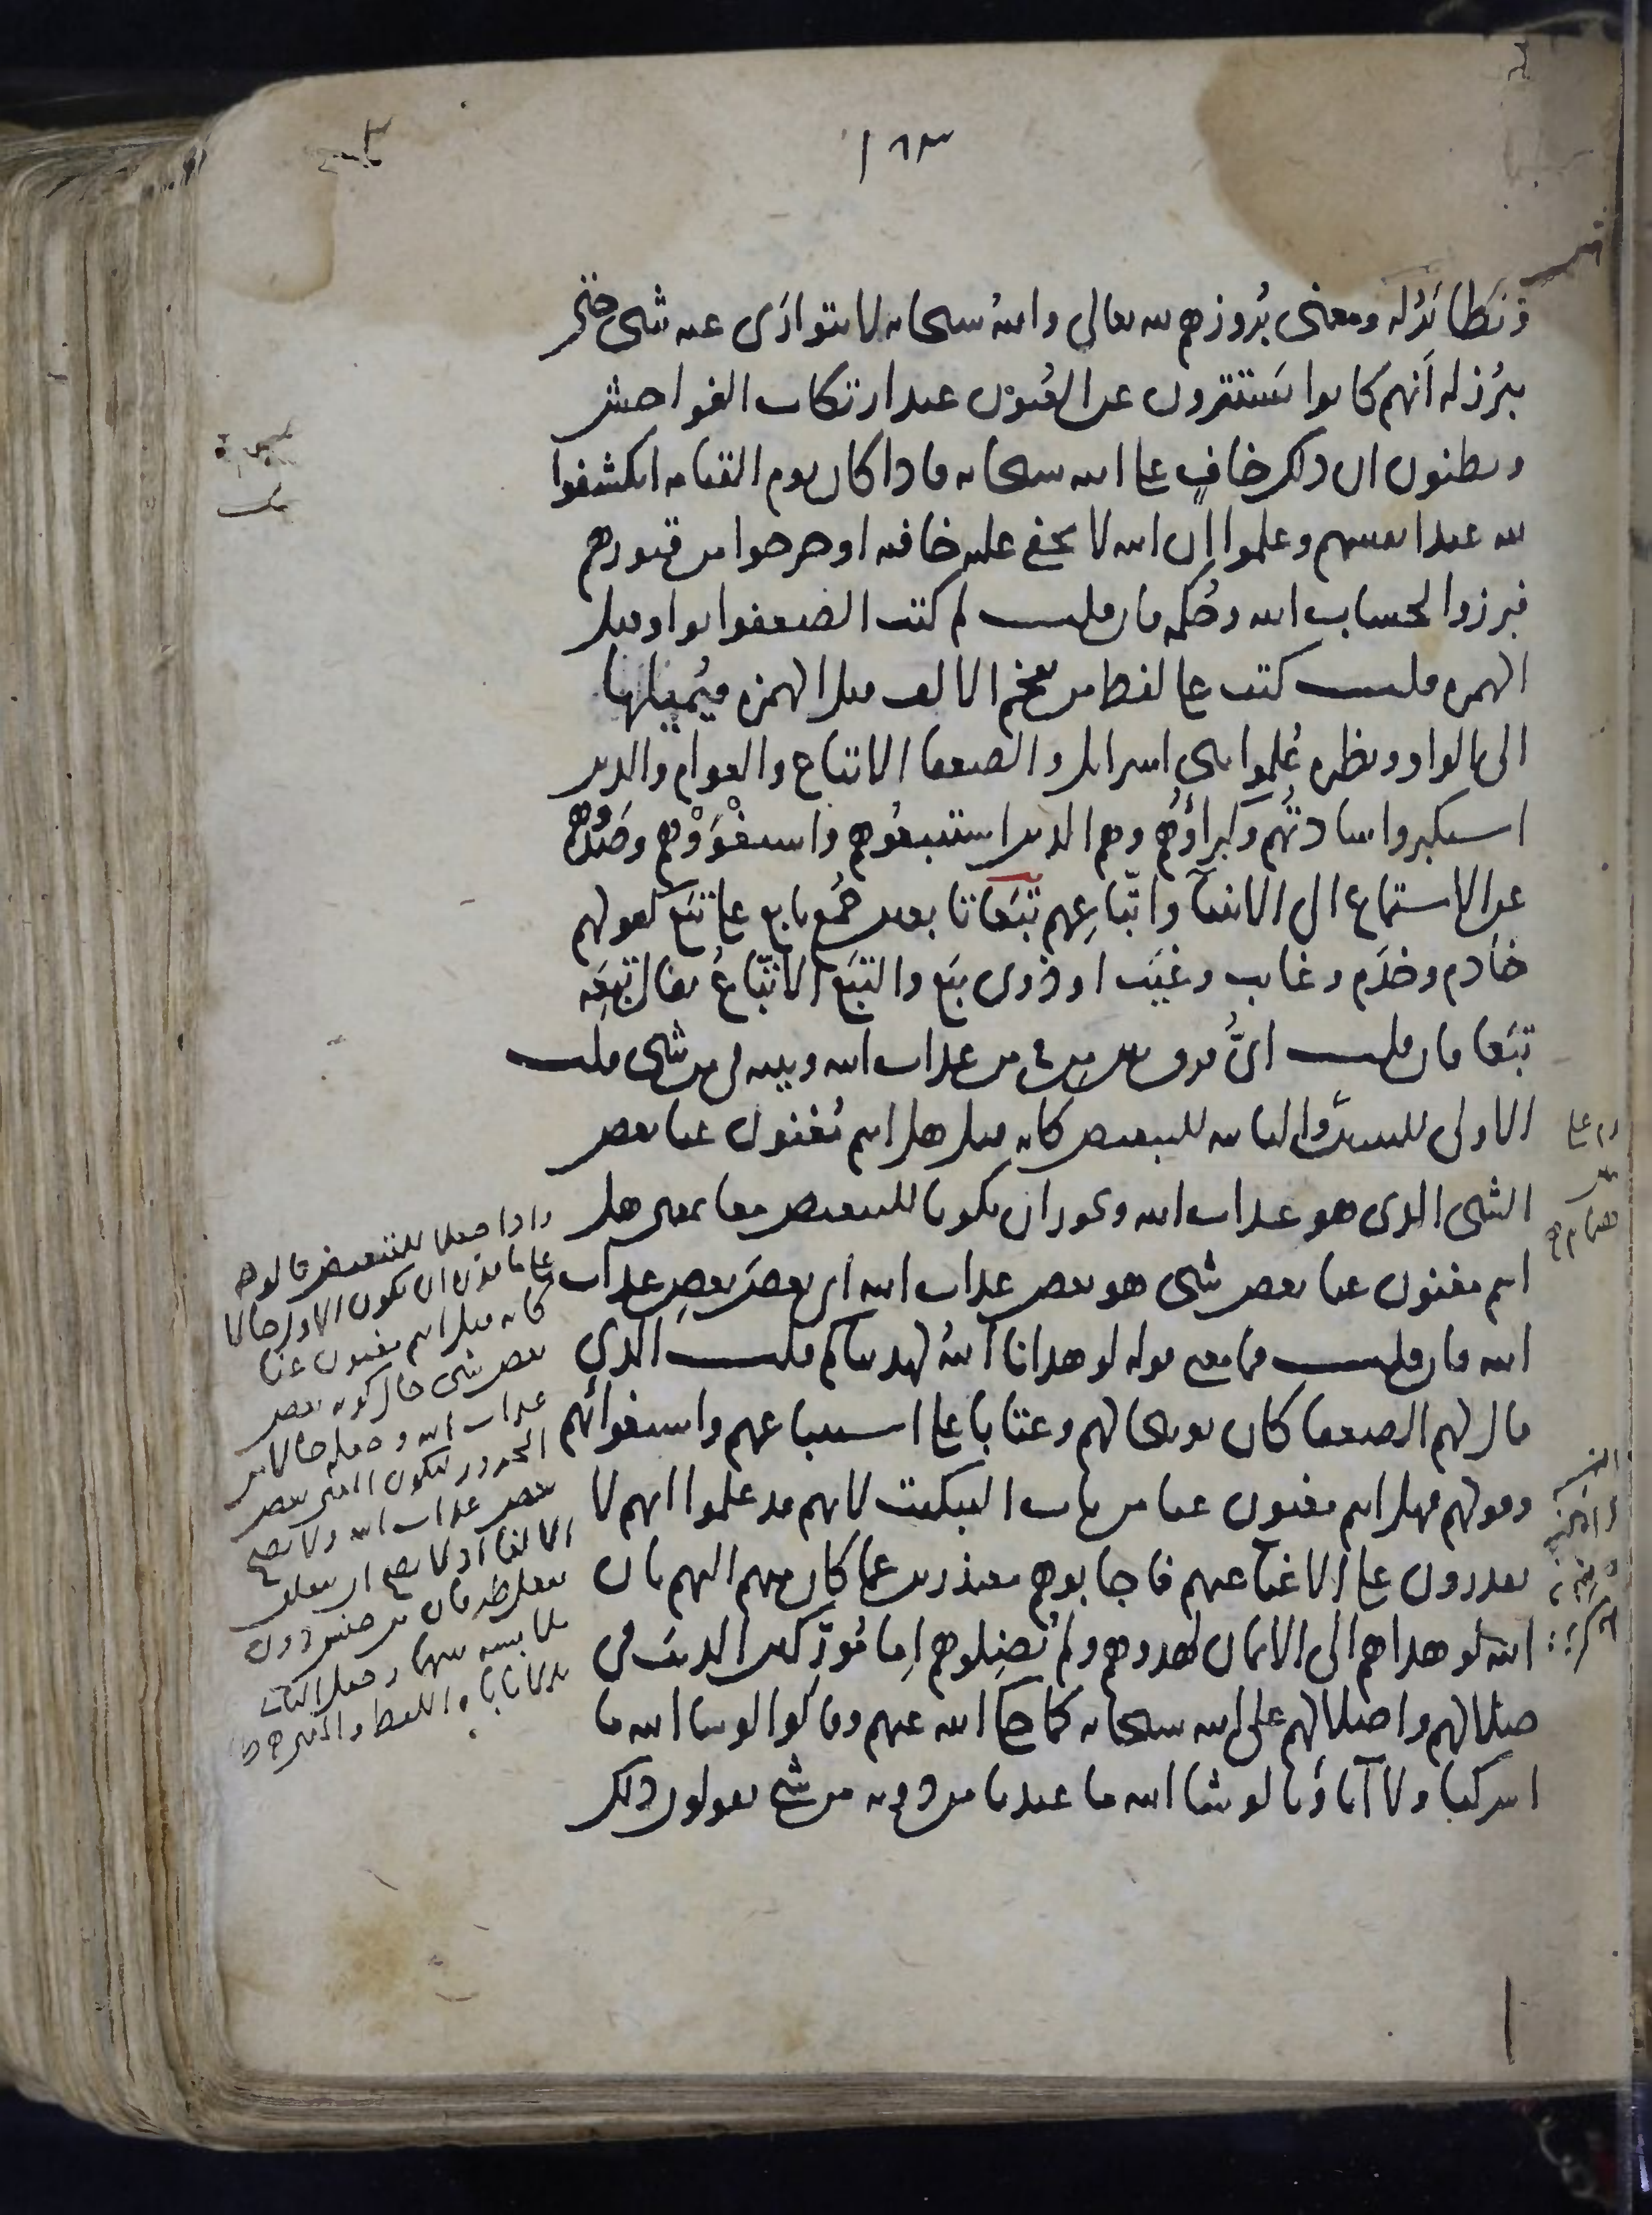 ١٨٣
ونظائر له ومعنى بروزهم لله تعالى والله سبحانه لا يتوارى عنه شيء حتى
يبرز له أنهم كانوا يستترون عن العيون عند ارتكاب الفواحش
ويظنون ان ذلك خافٍ على الله سبحانه فاذا كان يوم القيامة انكشفوا
لله عند انفسهم وعلموا ان الله لا يخفى عليه خافية او خرجوا من قبورهم
فبرزوا لحساب الله وحكمه فان قلت لم كتب الضعفوا بواو قبل
الهمزة قلت كتب على لفظ من يفخم الالف قبل الهمزة فيميلها
الى الواو ونظيره علموا بني اسرائيل والضعفا الاتباع والعوام والذين
استكبروا ساداتهم وكبراؤهم وهم الذين استتبعوهم واستغووهم وصدوهم
عن الاستماع الى الانبيآ واتباعهم تبعا تابعين جمع تابع على تبع كقولهم
خادم وخدم وغايب وغيب او ذوى تبع والتبع الاتباع يقال تبعه
تبعا فان قلت اى فرق بين من في من عذاب الله وبينه في من شيء قلت
الاولى للتبيين والثانيه للتبعيض كانه قيل هل انتم مغنون عنا بعض
الشيء الذي هو عذاب الله ويجوز ان يكونا للتبعيض معا بمعنى هل
انتم مغنون عنا بعض شيء هو بعض عذاب الله اى بعضَ بعضِ عذاب
الله فان قلت فما معنى قوله لو هدانا الله لهديناكم قلت الذي
قال لهم الضعفا كان توبيخا لهم وعتابا على استتباعهم واستغوائهم
وقولهم فهل انتم مغنون عنا من باب التبكيت لانهم قد علموا انهم لا
يقدرون على الاغنآ عنهم فاجابوهم معتذرين عما كان منهم اليهم بان
الله لو هداهم الى الايمان لهدوهم ولم يضلوهم إما مورّكين الذنب في
ضلالهم واضلالهم على الله سبحانه كما حكا الله عنهم وقالوا لو شا الله ما
اشركنا ولا آباؤنا لو شا الله ما عبدنا من دونه من شيء يقولون ذلك
واذا جعلا للتبعيض قالوجه
على ما قالوا ان يكون الاول حالا
كانه قيل انتم مغنون عنا
بعض شيء حال كونه بعض
عذاب الله وجعله حالا من
المجرور ليكون المعنى بعض
بعض عذاب الله ولا يصح